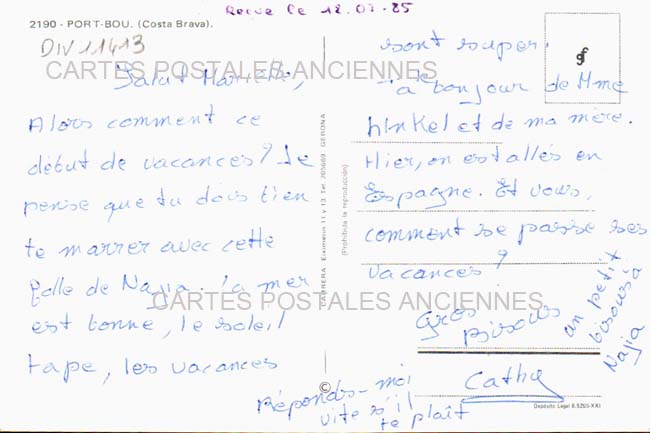 Recue le 12.07.85
2190 - PORT-BOU. (Costa Brava).
DIV 11413
CARTES POSTALES ANCIENNES
Salut
Alors comment ce
début de vacances? Je
pense que tu dois bien
te marrer avec cette
folle de Najia. la mer
est bonne, le soleil
tape, les vacances
CARRERA Eximenis 11 y 13. Tel. 203669 GERONA
(Prohibida la reproducción)
sont super.
bonjour de Mme
hinkel et de ma mère.
Hier, on est allés en
Espagne. Et vous,
comment se passe ses
vacances?
CARTES POSTALES ANCIENNES
Gros
Bisous
un petit
bisous à
Najia
Cathy
Réponds-moi
vite s'il
te plaît
Depósito Legal B.5205-XXI